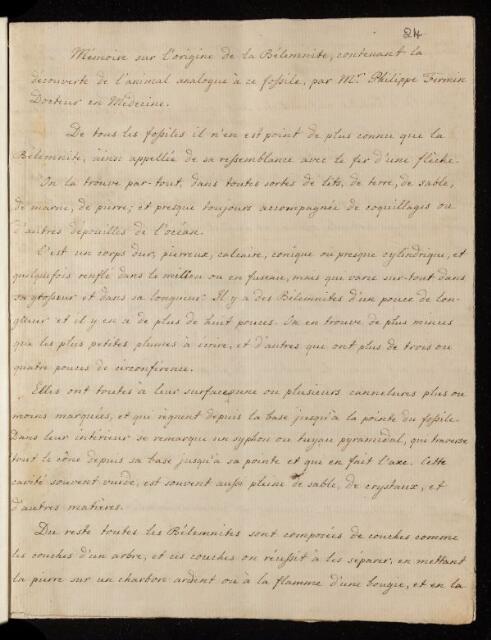 84
Mémoire sur l'origine de la Bélemnite, contenant la
découverte de l'animal analogue à ce fossile, par Mr. Philippe Fermin
Docteur en Médecine.
De tous les fossiles il n'en est point de plus connu que la
Bélemnite, ainsi appellée de sa ressemblance avec le fer d'une flèche.
On la trouve par-tout, dans toutes sortes de lits, de terre, de sable,
de marne, de pierre; et presque toujours accompagnée de coquillages ou
d'autres dépouilles de l'océan.
C'est un corps dur, pierreux, calcaire, conique ou presque cylindrique, et
quelquefois renflé dans le milieu ou en fuseau, mais qui varie sur-tout dans
sa grosseur et dans sa longueur. Il y a des Bélemnites d'un pouce de lon-
gueur et il y en a de plus de huit pouces. On en trouve de plus minces
que les plus petites plumes à écrire, et d'autres que ont plus de trois ou
quatre pouces de circonférence.
Elles ont toutes à leur surface une ou plusieurs cannelures plus ou
moins marqués, et qui règnent depuis la base jusqu'à la pointe du fossile.
Dans leur intérieur se remarque un syphon ou tuyau pyramidal, qui traverse
tout le cône depuis sa base jusqu'à sa pointe et qui en fait l'axe. Cette
cavité souvent vuide, est souvent aussi pleine de sable, de crystaux, et
d'autres matières.
Du reste toutes les Bélemnites sont composées de couches comme
les couches d'un arbre, et ces couches on réussit à les séparer, en mettant
la pierre sur un charbon ardent ou à la flamme d'une bougie, et en la